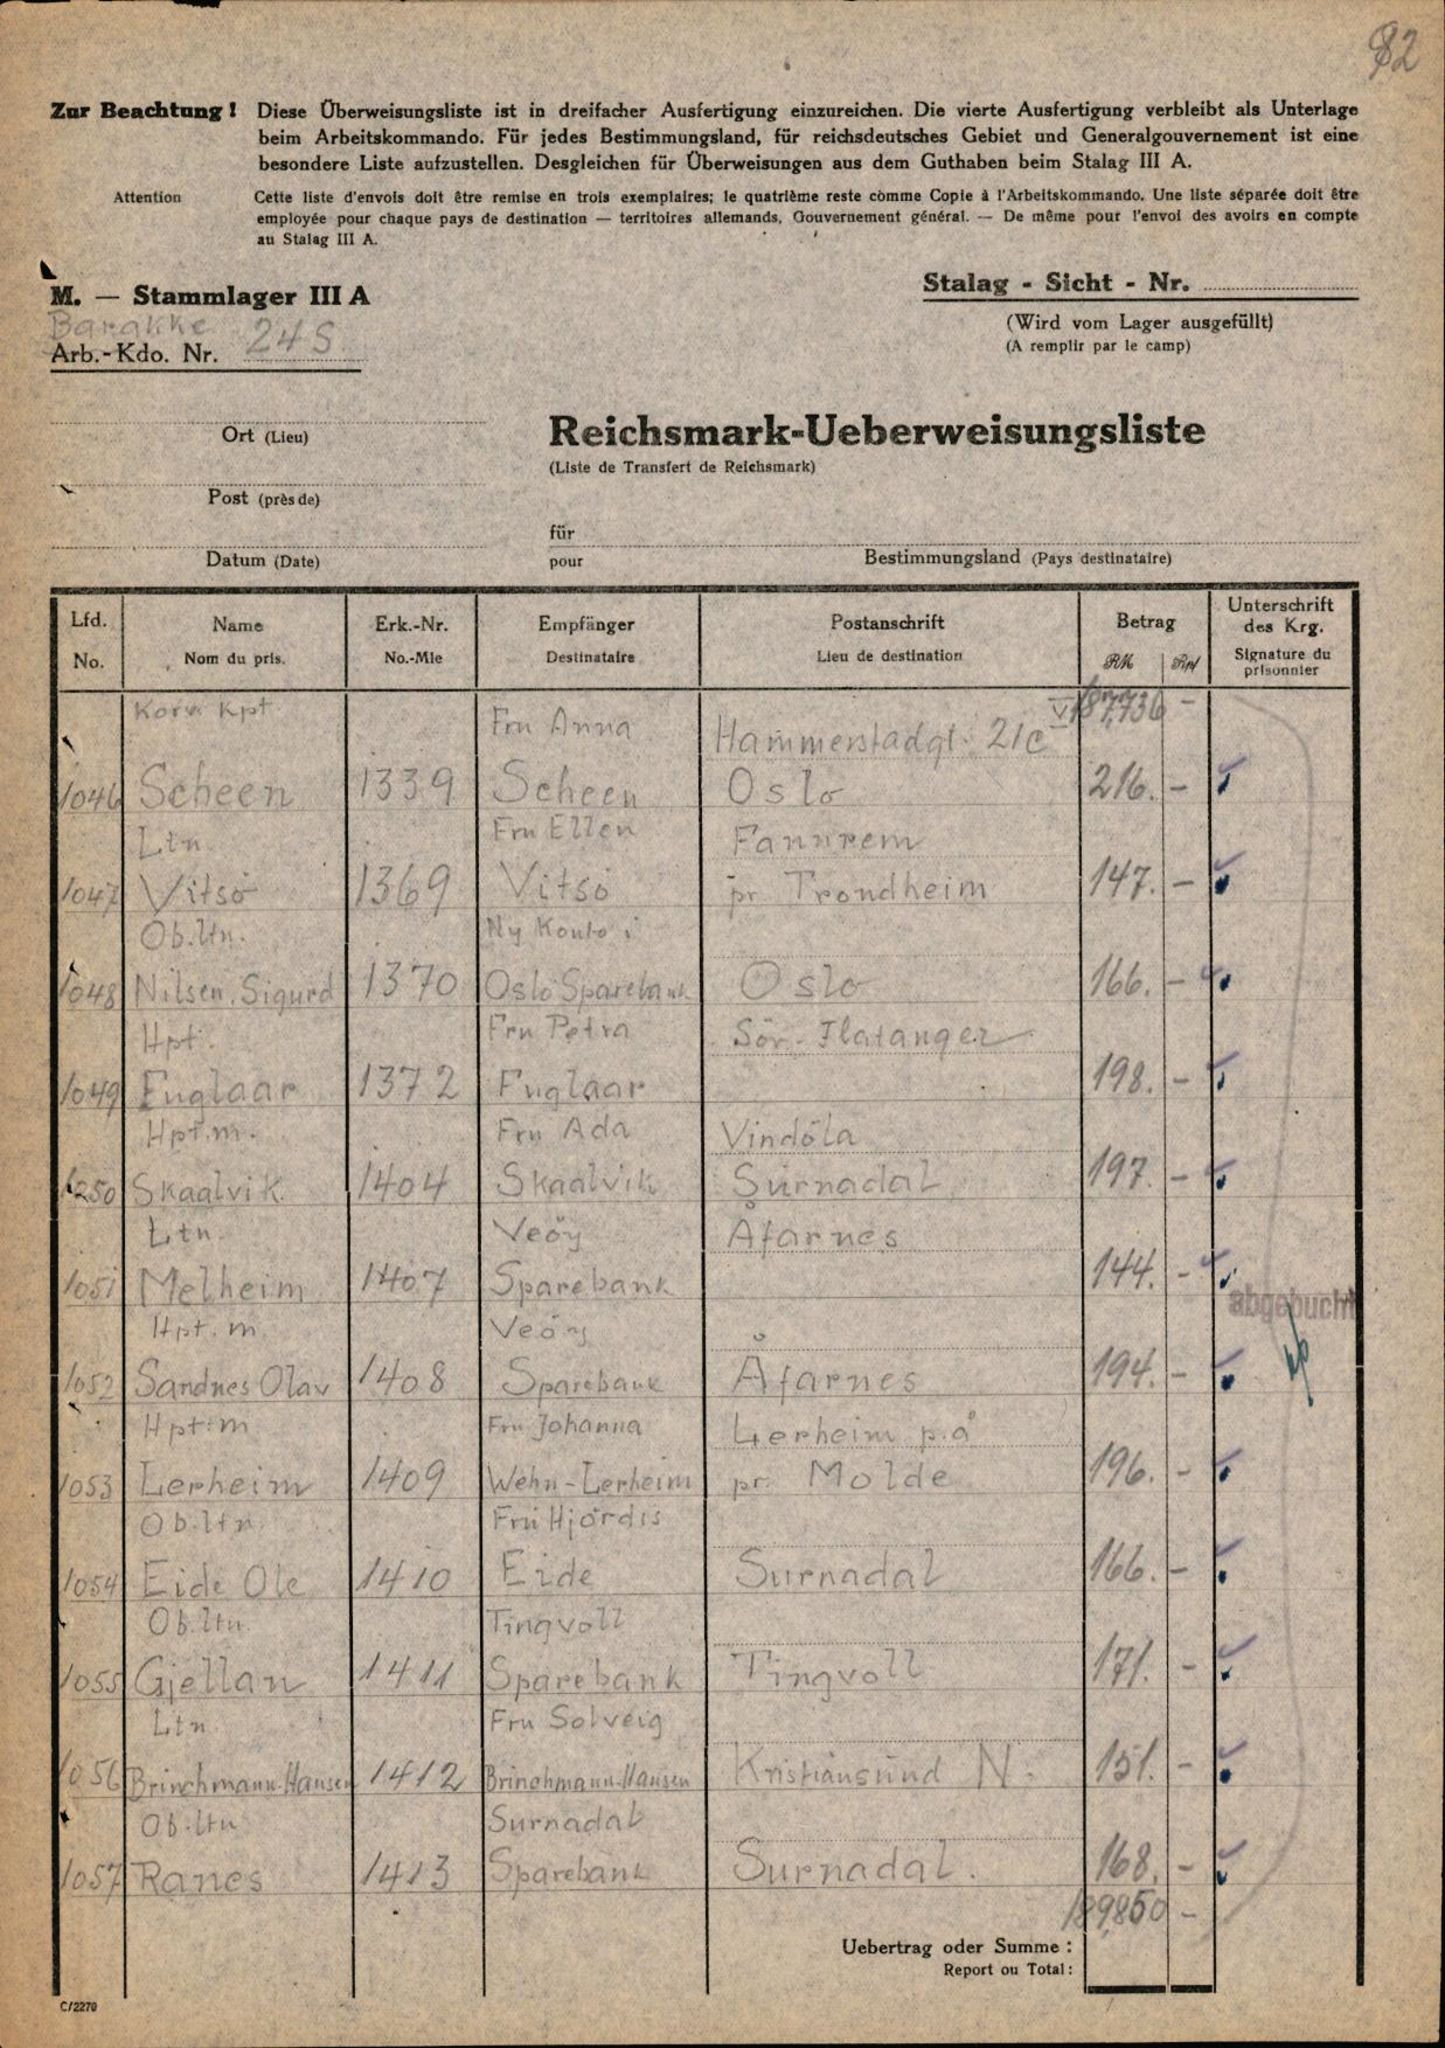 82
Zur Beachtung! Diese Überweisungsliste ist in dreifacher Ausfertigung einzureichen. Die vierte Ausfertigung verbleibt als Unterlage
beim Arbeitskommando. Für jedes Bestimmungsland, für reichsdeutsches Gebiet und Generalgouvernement ist eine
besondere Liste aufzustellen. Desgleichen für Überweisungen aus dem Guthaben beim Stalag III A.
Attention Cette liste d'envois doit être remise en trois exemplaires; le quatrième reste comme Copie à l'Arbeitskommando. Une liste séparée doit être
employée pour chaque pays de destination — territoires allemands, Gouvernement général. — De même pour l'envoi des avoirs en compte
au Stalag III A.
M. — Stammlager III A
Stalag - Sicht - Nr.
Barakke
(Wird vom Lager ausgefüllt)
Arb.-Kdo. Nr. 24S
(A remplir par le camp)
Ort (Lieu)
Reichsmark-Ueberweisungsliste
(Liste de Transfert de Reichsmark)
Post (près de)
für
Datum (Date)
pour Bestimmungsland (Pays destinataire)
Lfd. Name Erk.-Nr. Empfänger Postanschrift Betrag Unterschrift des Krg.
No. Nom du pris. No.-Mle Destinataire Lieu de destination RM Rpf Signature du prisonnier
Korv. Kpt Frn Anna Hammerstadgt. 21c VI 187,736 -
1046 Scheen 1339 Scheen Oslo 216. -
Ltn. Frn Ellen Fannrem
1047 Vitsö 1369 Vitsö pr Trondheim 147. -
Ob.ltn. Ny Konto i
1048 Nilsen, Sigurd 1370 Oslo Sparebank Oslo 166. -
Hpt. Frn Petra Sör-Flatanger
1049 Fuglaar 1372 Fuglaar 198. -
Hpt.m. Frn Ada Vindöla
1250 Skaalvik 1404 Skaalvik Surnadal 197. -
Ltn. Veöy Åfarnes
1051 Melheim 1407 Sparebank 144. -
abgebucht
Hpt.m. Veöy
1052 Sandnes Olav 1408 Sparebank Åfarnes 194. -
Hpt:m Frn Johanna Lerheim p.å
1053 Lerheim 1409 Wehn-Lerheim pr. Molde 196. -
Ob.ltn. Frn Hjördis
1054 Eide Ole 1410 Eide Surnadal 166. -
Ob.ltn. Tingvoll
1055 Gjellan 1411 Sparebank Tingvoll 171. -
Ltn. Frn Solveig
1056 Brinchmann-Hansen 1412 Brinchmann-Hansen Kristiansund N. 151. -
Ob.ltn Surnadal
1057 Ranes 1413 Sparebank Surnadal. 168. -
189,850 -
Uebertrag oder Summe :
Report ou Total:
C/2270